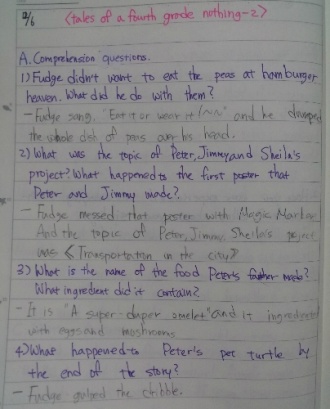 2/6
<tales of a fourth grade nothing-2>
A. Comprehension questions.
1) Fudge didn't want to eat the peas at hamburger
heaven. What did he do with them?
- Fudge sang, "Eat it or wear it" and he dumped
the whole dish of peas over his head.
2) What was the topic of Peter, Jimmy and Sheila's
project? What happened to the first poster that
Peter and Jimmy made?
- Fudge messed that poster with Magic Marker
And the topic of Peter, Jimmy, Sheila's project
was <Transportation in the city>
3) What is the name of the food Peter's father made?
What ingredient did it contain?
- It is "A super-duper omelet" and it ingredient
with eggs and moshrooms
4) What happened to Peter's pet turtle by
the end of the story?
- Fudge gulped the dribble.